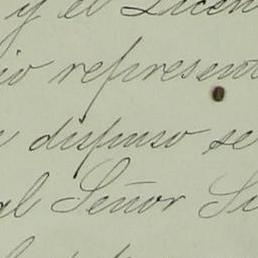 y el Licen
io represent
dispuso se
al Señor Li